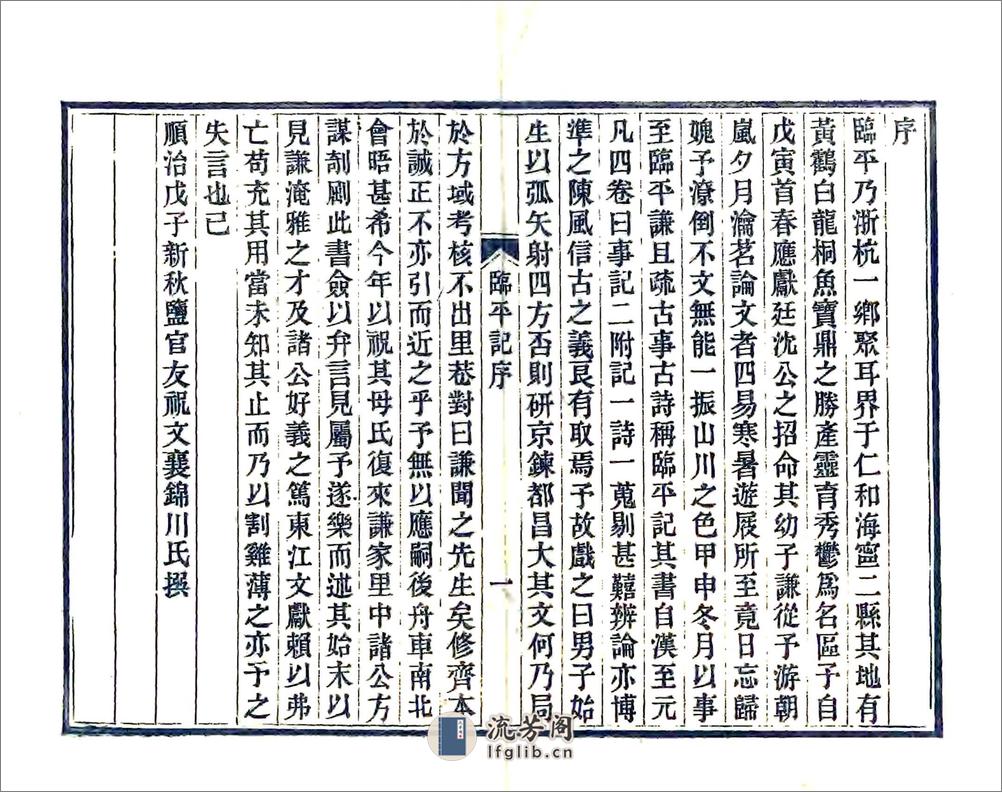 序
臨平乃浙杭一鄉聚耳界于仁和海寧二縣其地有
黃鶴白龍桐魚寶鼎之勝產靈育秀鬱爲名區予自
戊寅首春應獻廷沈公之招命其幼子謙從予游朝
嵐夕月瀹茗論文者四易寒暑遊屐所至竟日忘歸
媿予潦倒不文無能一振山川之色甲申冬月以事
至臨平謙且疏古事古詩稱臨平記其書自漢至元
凡四卷曰事記二附記一詩一蒐剔甚囏辨論亦博
準之陳風信古之義良有取焉予故戲之曰男子始
生以弧矢射四方否則研京鍊都昌大其文何乃局
臨平記序
一
於方域考核不出里巷對曰謙聞之先生矣修齊本
於誠正不亦引而近之乎予無以應嗣後舟車南北
會晤甚希今年以祝其母氏復來謙家里中諸公方
謀剞劂此書僉以弁言見屬予遂樂而述其始末以
見謙淹雅之才及諸公好義之篤東江文獻賴以弗
亡苟充其用當未知其止而乃以割雞薄之亦予之
失言也已
順治戊子新秋鹽官友祝文襄錦川氏撰
流芳阁
lfglib.cn